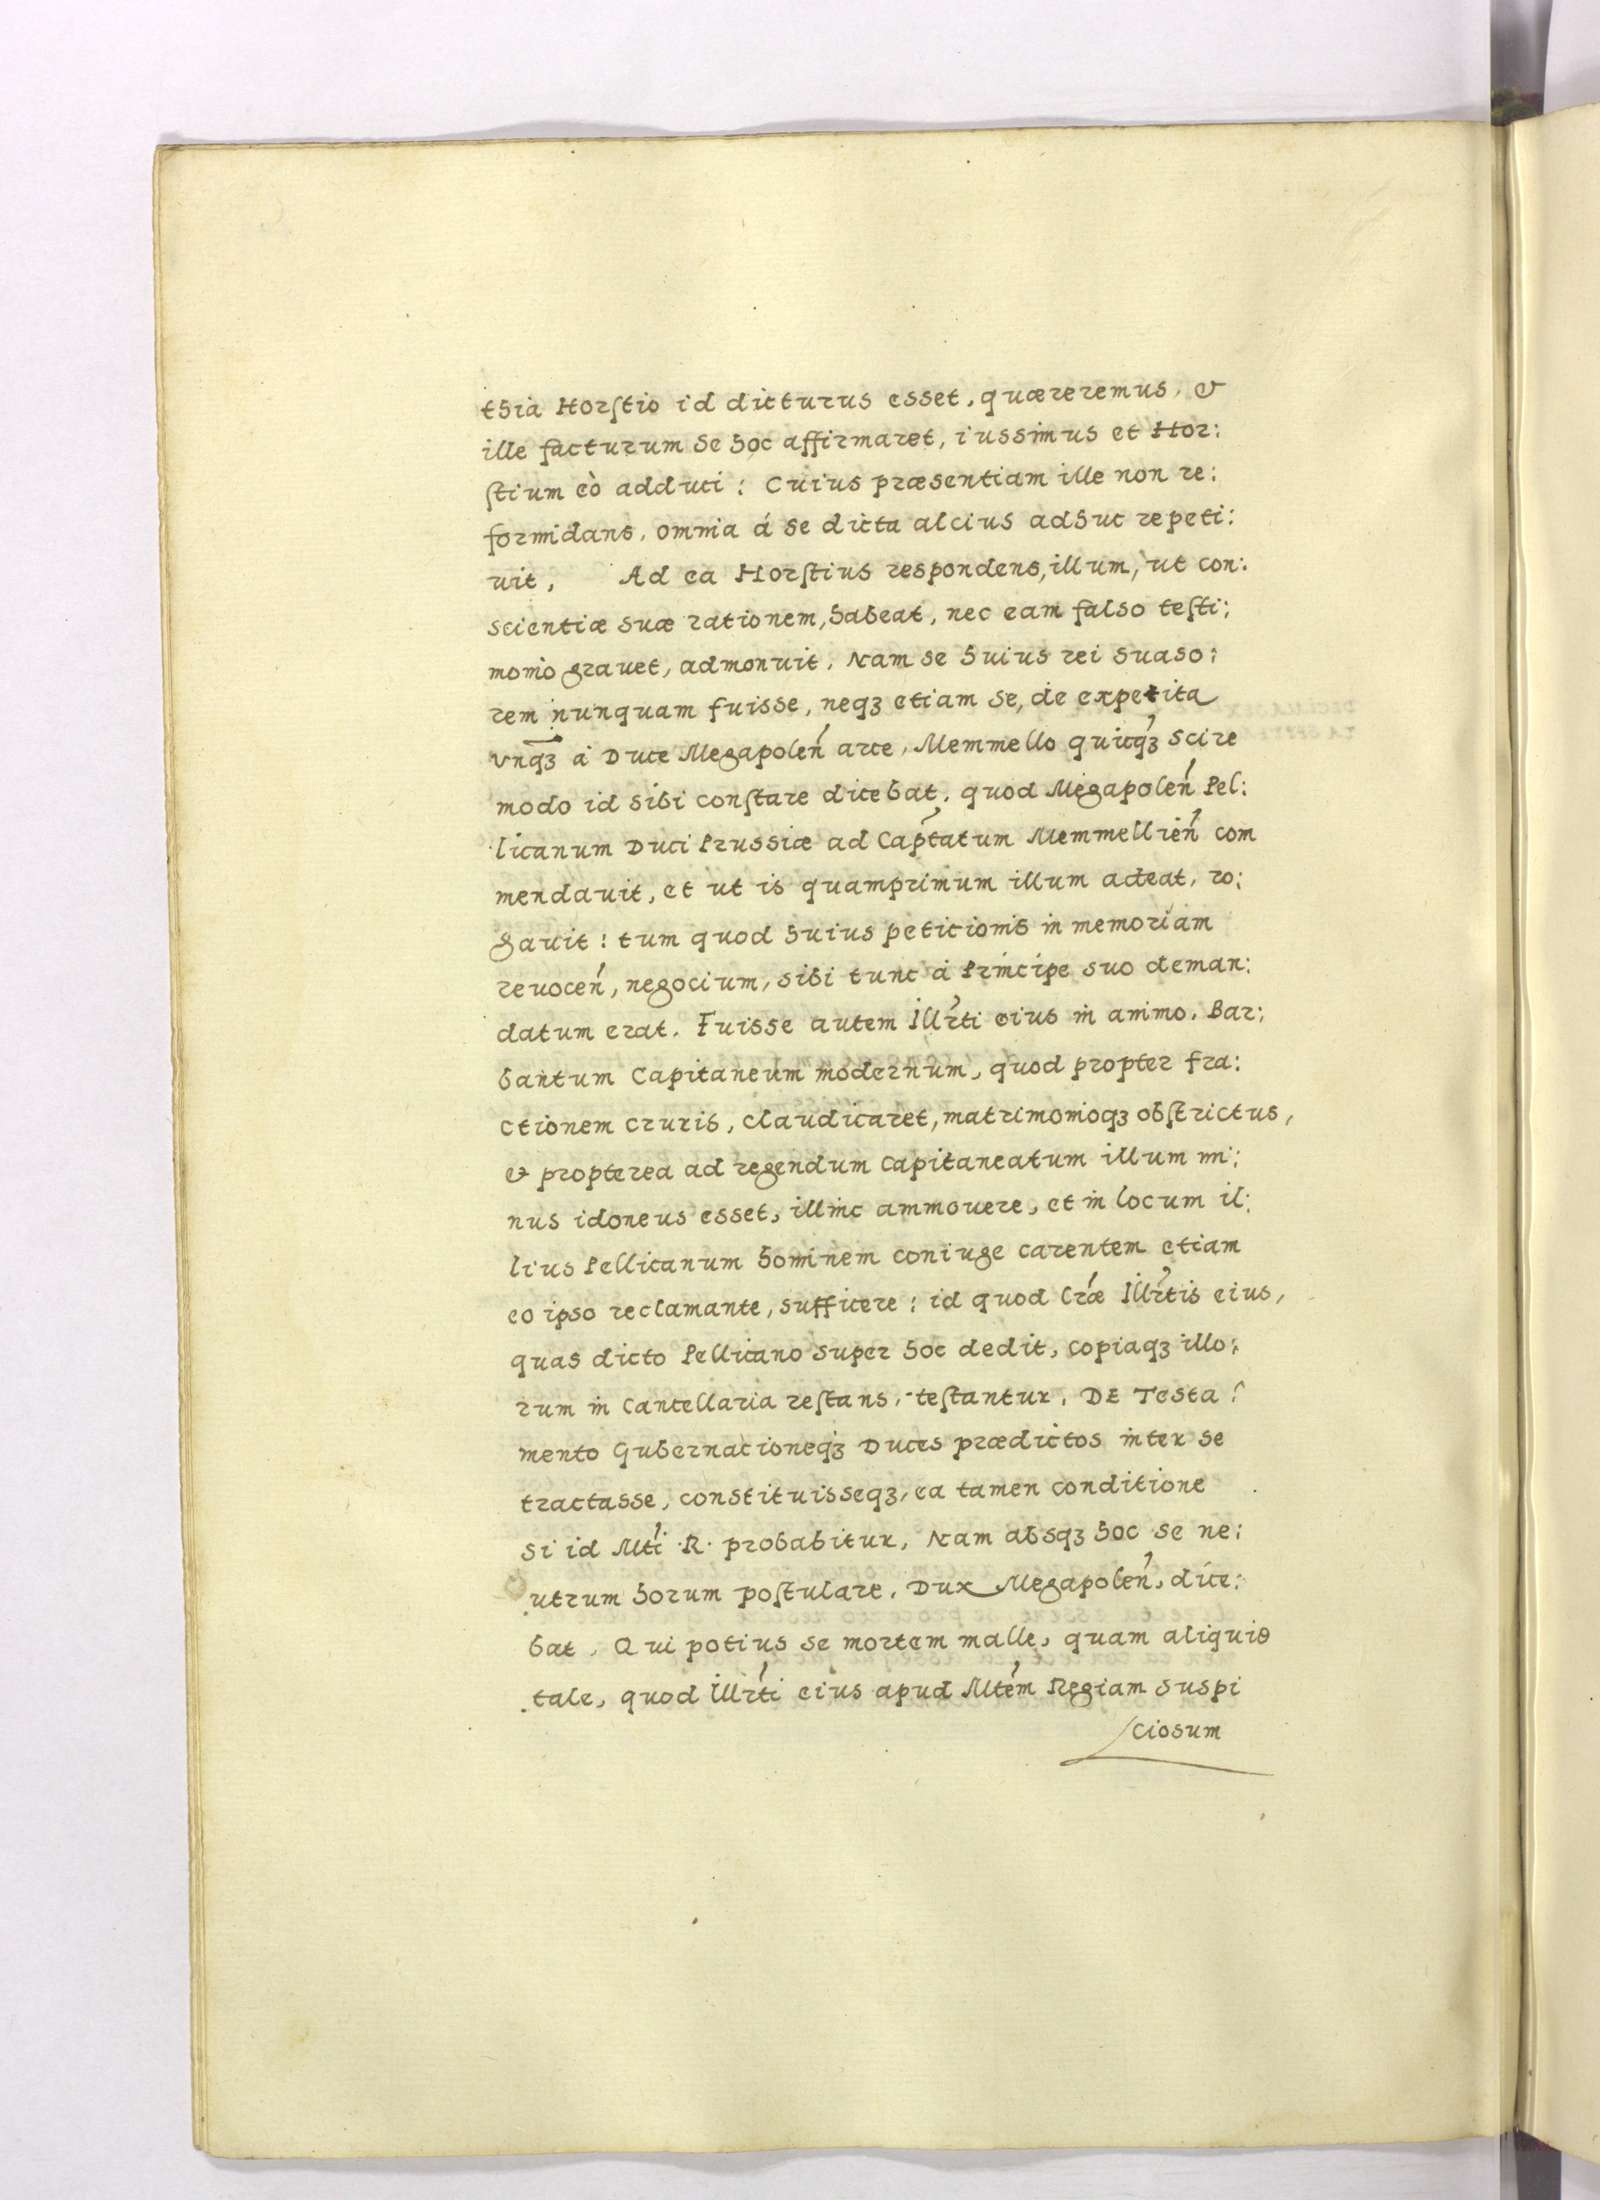 thia Horstio id dicturus esset, quæreremus, &
ille facturum se hoc affirmaret, iussimus et Hor:
stium eò adduci: Cuius præsentiam ille non re:
formidans, omnia á se dicta alcius adhuc repeti:
uit, Ad ea Horstius respondens, illum, ut con:
scientiæ suæ rationem, habeat, nec eam falso testi:
monio grauet, admonuit. Nam se huius rei suaso:
rem nunquam fuisse, neqꝫ etiam se, de expetita
vnqꝫ á Duce Megapoleń arce, Memmello quicqꝫ scire
modo id sibi constare dicebat, quod Megapoleń Pel:
licanum Duci Prussiæ ad Captatum Memmellień com
mendauit, et ut is quamprimum illum adeat, ro:
gauit: tum quod huius peticionis in memoriam
reuoceń, negocium, sibi tunc á Principe suo deman:
datum erat. Fuisse autem Illrti eius in animo, Bar:
bantum Capitaneum modernum, quod propter fra:
ctionem cruris, claudicaret, matrimonioqꝫ obstrictus,
& propterea ad regendum Capitaneatum illum mi:
nus idoneus esset, illinc ammouere, et in locum il:
lius Pellicanum hominem coniuge carentem etiam
eo ipso reclamante, sufficere: id quod Lræ Illrtis eius,
quas dicto Pellicano super hoc dedit, copiaqꝫ illo:
rum in Cancellaria restans, testantur. DE Testa:
mento Gubernacioneqꝫ Duces prædictos inter se
tractasse, constituisseqꝫ, ea tamen conditione
si id Mti R. probabitur, Nam absqꝫ hoc se ne:
utrum horum postulare. Dux Megapoleń, dice:
bat, Qui potius se mortem malle, quam aliquid
tale, quod Illrti eius apud Mtem Regiam suspi
ciosum